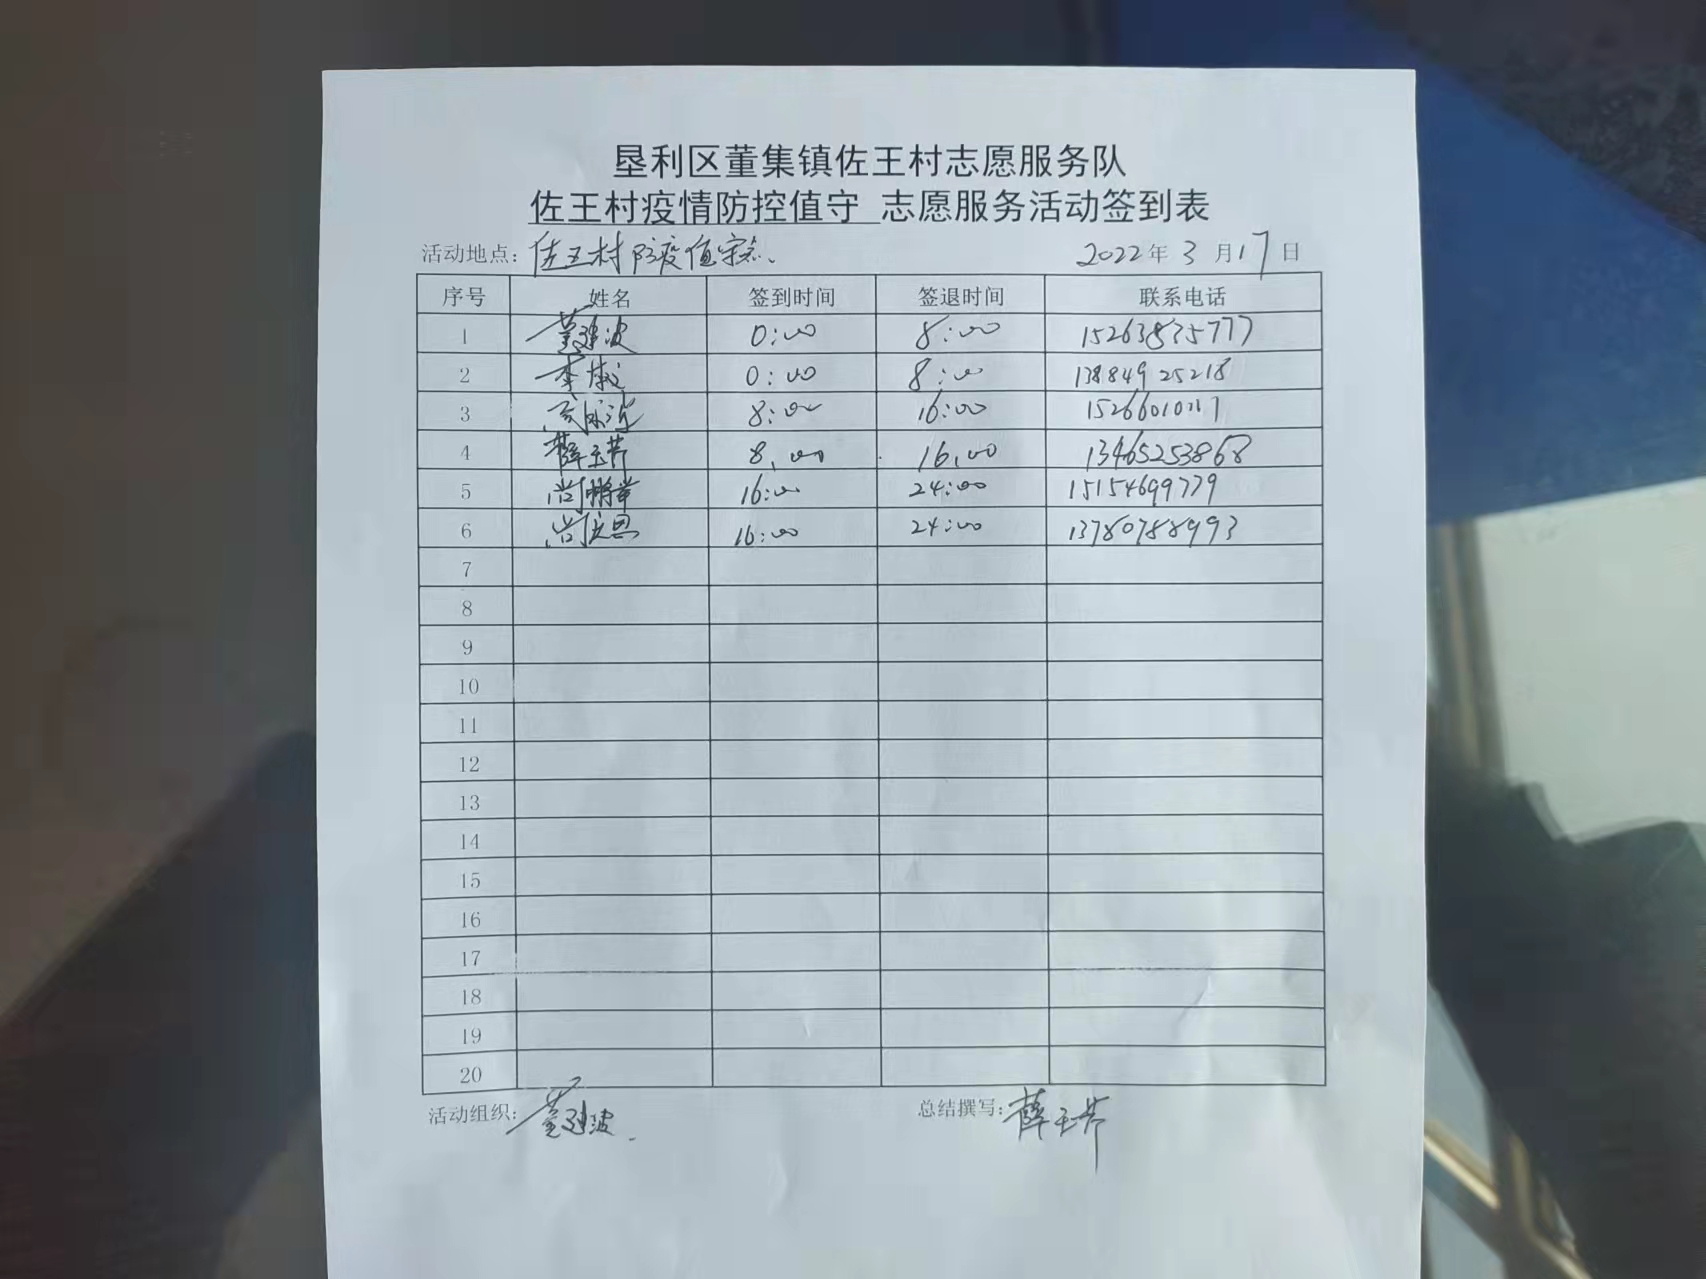 垦利区董集镇佐王村志愿服务队
佐王村疫情防控值守 志愿服务活动签到表
活动地点：佐王村防疫值守点 2022年3月17日
序号 姓名 签到时间 签退时间 联系电话
1 董建波 0:00 8:00 15263835777
2 李 0:00 8:00 13884925218
3 8:00 16:00
4 薛玉芹 8:00 16:00 13465253868
5 尚 16:00 24:00 15154699779
6 尚 16:00 24:00 13780788993
7
8
9
10
11
12
13
14
15
16
17
18
19
20
活动组织：董建波 总结撰写：薛玉芹